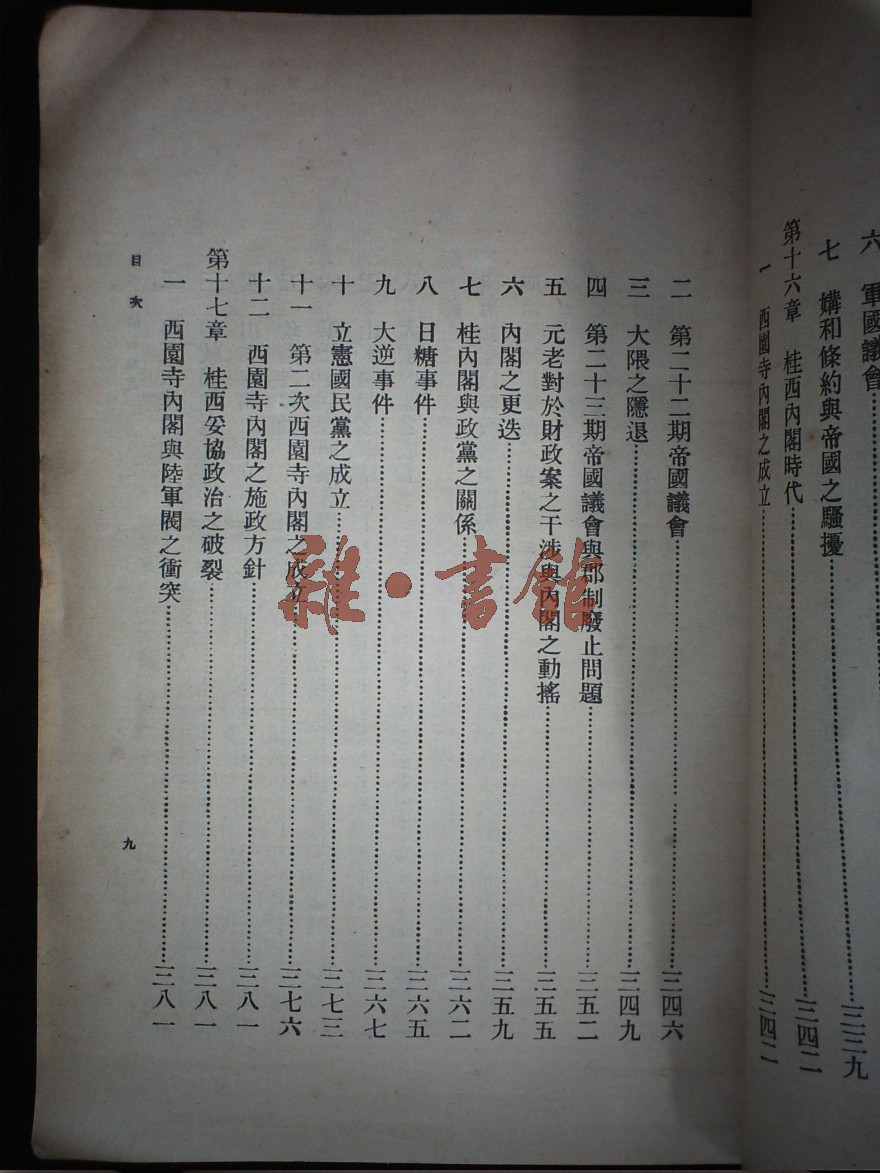 六　軍國議會
七　媾和條約與帝國之騷擾………三三九
第十六章　桂西內閣時代………三四二
一　西園寺內閣之成立………三四二
二　第二十二期帝國議會………三四六
三　大隈之隱退………三四九
四　第二十三期帝國議會與郡制廢止問題………三五二
五　元老對於財政案之干涉與內閣之動搖………三五五
六　內閣之更迭………三五九
七　桂內閣與政黨之關係………三六二
八　日糖事件………三六五
九　大逆事件………三六七
十　立憲國民黨之成立………三七三
十一　第二次西園寺內閣之成立………三七六
十二　西園寺內閣之施政方針………三八一
第十七章　桂西妥協政治之破裂………三八一
一　西園寺內閣與陸軍閥之衝突………三八一
目次
九
雜·書館